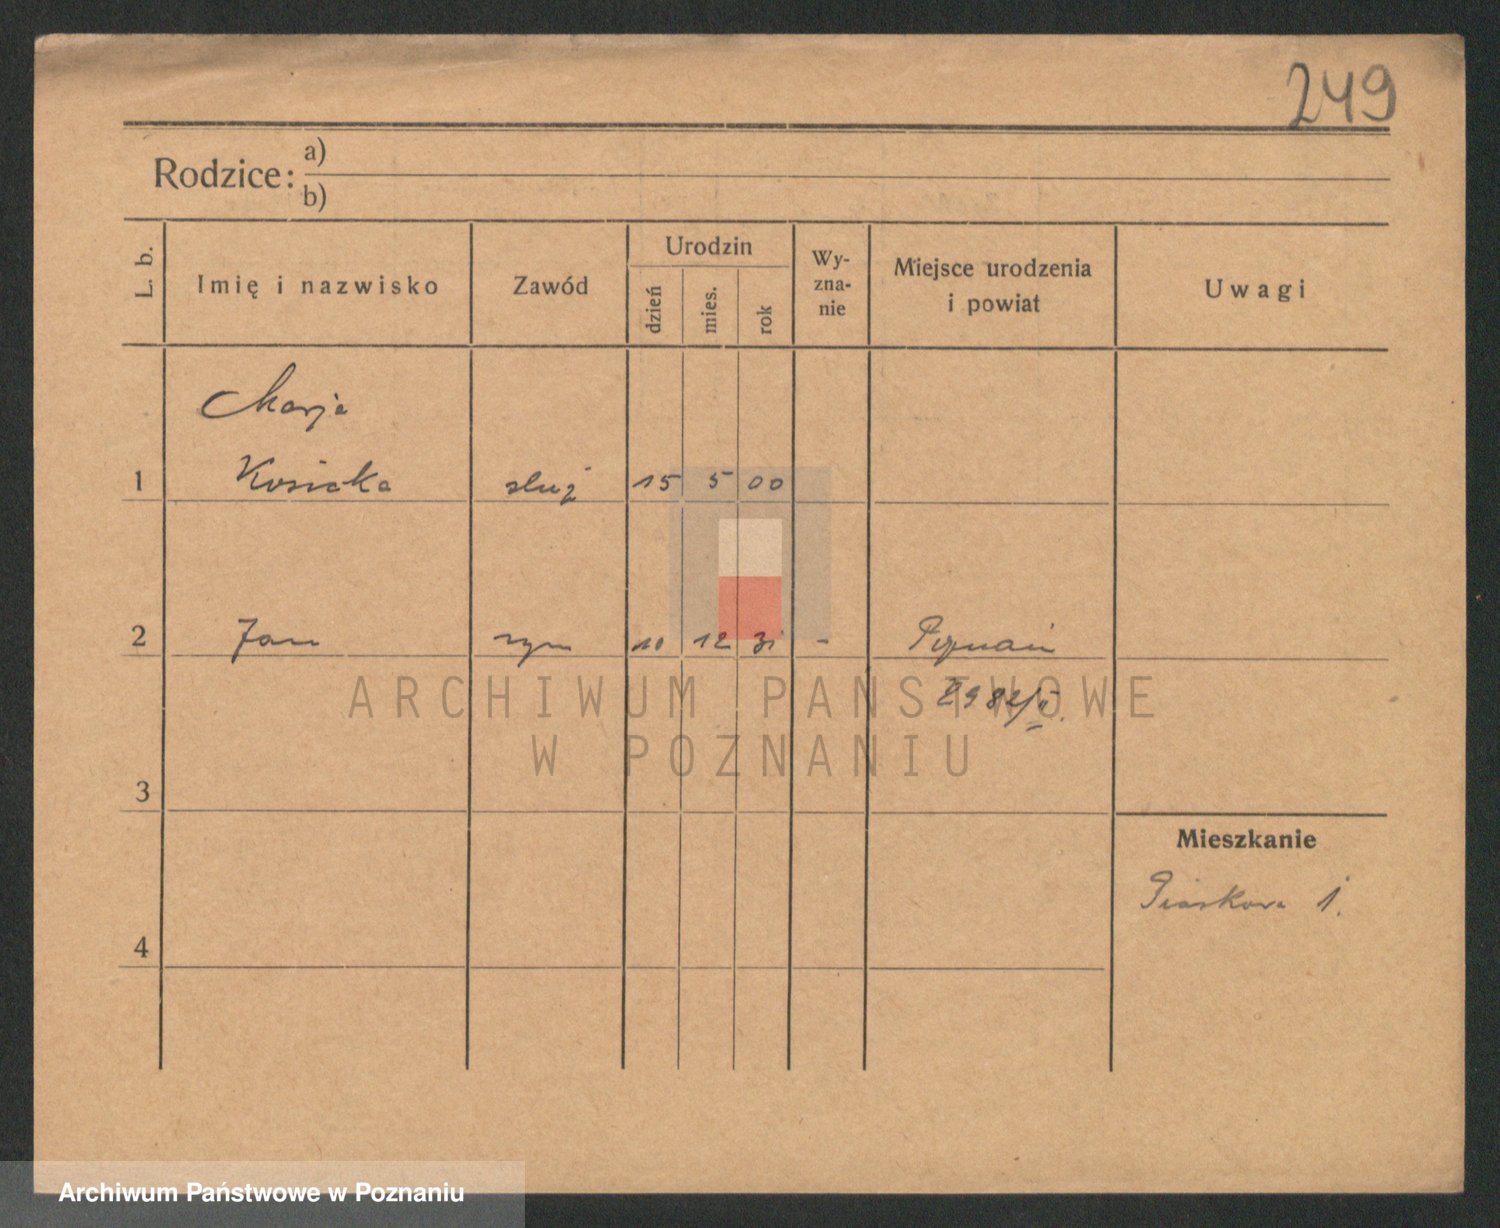 249
Rodzice: a)
b)
L. b.
Imię i nazwisko
Zawód
Urodzin
dzień
mies.
rok
Wy-
zna-
nie
Miejsce urodzenia
i powiat
Uwagi
Marja
1 Kosicka służ 15 5 00
2 Jan syn 10 12 31 - Poznań
2982/II.
3
4
Mieszkanie
Piaskowa 1.
ARCHIWUM PAŃSTWOWE
W POZNANIU
Archiwum Państwowe w Poznaniu